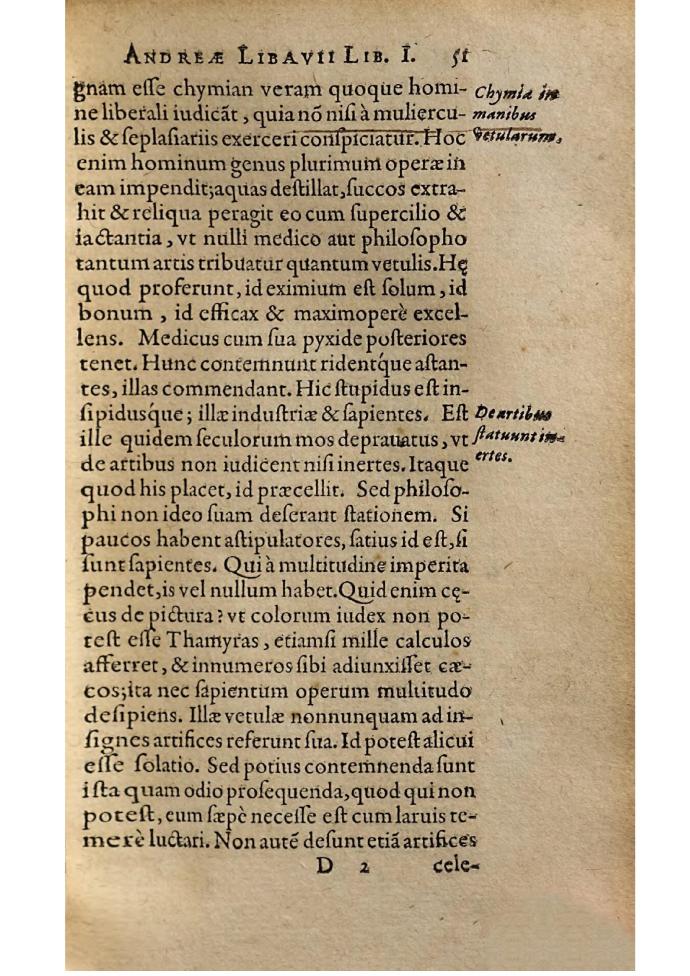 ANDREÆ LIBAVII LIB. I. 51
gnam eſſe chymian veram quoque homi-
ne liberali iudicāt, quia nō niſi à muliercu-
lis & ſeplaſiariis exerceri conſpiciatur. Hoc
enim hominum genus plurimum operæ in
eam impendit; aquas deſtillat, ſuccos extra-
hit & reliqua peragit eo cum ſupercilio &
iactantia, vt nulli medico aut philoſopho
tantum artis tribuatur quantum vetulis. Hę
quod proferunt, id eximium eſt ſolum, id
bonum, id efficax & maximoperè excel-
lens. Medicus cum ſua pyxide poſteriores
tenet. Hunc contemnunt ridentq́ue aſtan-
tes, illas commendant. Hic ſtupidus eſt in-
ſipidusq́ue; illæ induſtriæ & ſapientes. Eſt
ille quidem ſeculorum mos deprauatus, vt
de artibus non iudicent niſi inertes. Itaque
quod his placet, id præcellit. Sed philoſo-
phi non ideo ſuam deſerant ſtationem. Si
paucos habent aſtipulatores, ſatius id eſt, ſi
ſunt ſapientes. Qui à multitudine imperita
pendet, is vel nullum habet. Quid enim cę-
cus de pictura? vt colorum iudex non po-
teſt eſſe Thamyras, etiamſi mille calculos
afferret, & innumeros ſibi adiunxiſſet cæ-
cos; ita nec ſapientum operum multitudo
deſipiens. Illæ vetulæ nonnunquam ad in-
ſignes artifices referunt ſua. Id poteſt alicui
eſſe ſolatio. Sed potius contemnenda ſunt
iſta quam odio proſequenda, quod qui non
poteſt, eum ſæpè neceſſe eſt cum laruis te-
merè luctari. Non autē deſunt etiā artifices
D 2 cele-
Chymia in
manibus
vetularum.
De artibus
ſtatuunt in-
ertes.